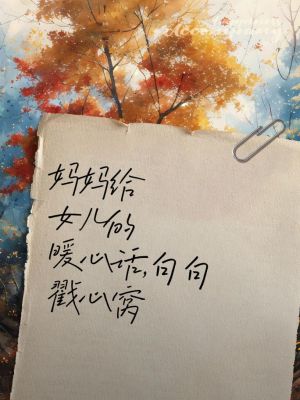 妈妈给
女儿的
暖心话,句句
戳心窝